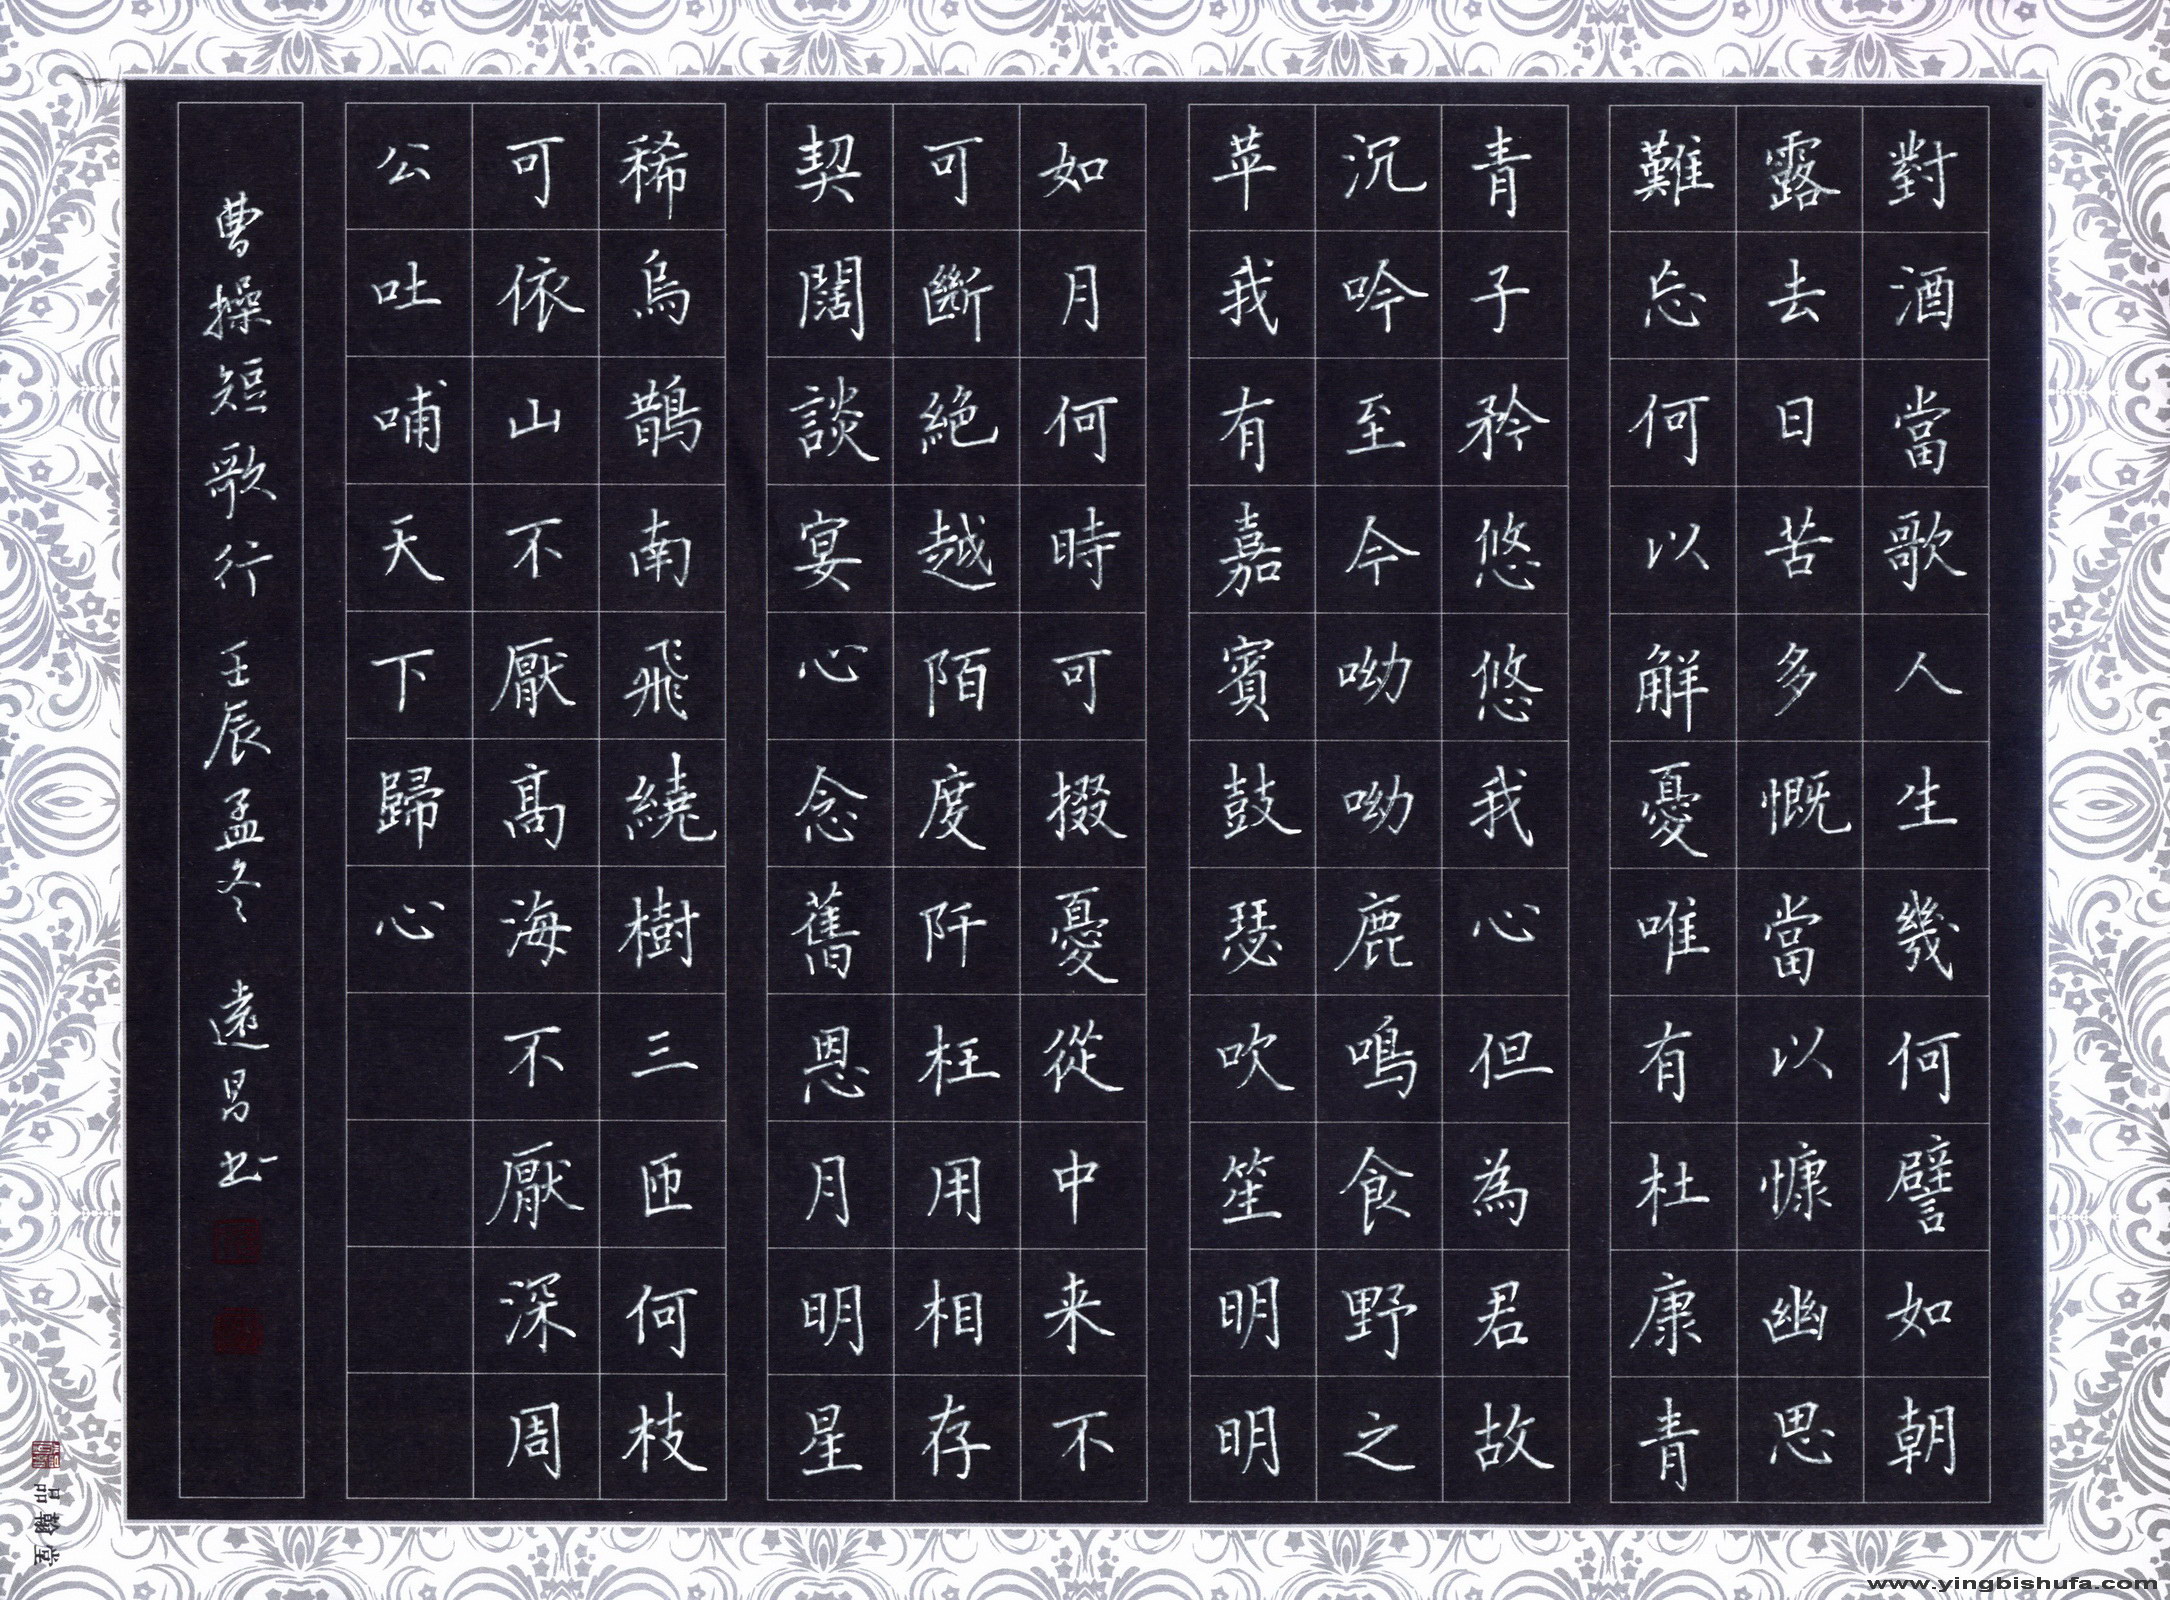 對酒當歌人生幾何譬如朝
露去日苦多慨當以慷幽思
難忘何以解憂唯有杜康青
青子矜悠悠我心但為君故
沉吟至今呦呦鹿鳴食野之
苹我有嘉賓鼓瑟吹笙明明
如月何時可掇憂從中来不
可斷絶越陌度阡枉用相存
契闊談宴心念舊恩月明星
稀烏鵲南飛繞樹三匝何枝
可依山不厭高海不厭深周
公吐哺天下歸心
曹操短歌行 壬辰孟冬 遠昌书
品翰堂
www.yingbishufa.com